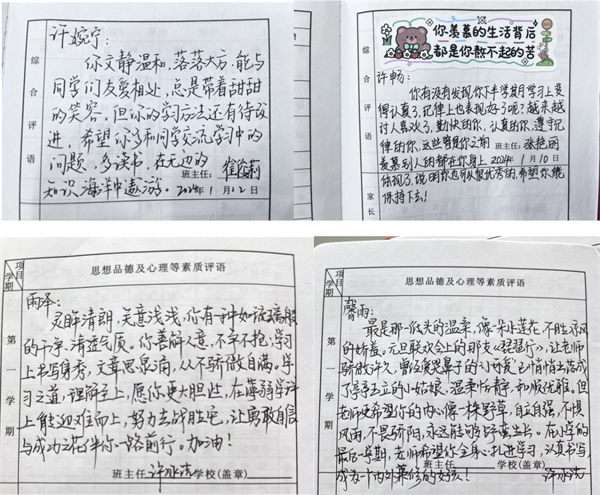 综合评语
许婉宁：
你文静温和，落落大方，能与
同学们友爱相处，总是带着甜甜
的笑容，但你的学习方法还有待改
进，希望你多和同学交流学习中的
问题，多读书，在无边的
知识海洋中遨游。
班主任：
2024年1月12日
你羡慕的生活背后
都是你熬不起的苦
综合评语
许畅：
你有没有发现，你下半学期学习上变
得认真了，纪律上也表现好了呢？越来越
讨人喜欢了，勤快的你，认真的你，遵守纪
律的你，这些曾是你之前
班主任：张艳丽
羡慕别人的都在你身上
2024年1月10日
体现了，说明你也可以很优秀的，希望你能
保持下去！
家长
项目
学期
思想品德及心理等素质评语
第一学期
雨泽：
灵眸清朗，笑意浅浅，你有一种如玻璃般
的干净、清透气质。你善解人意，不争不抢；学习
上书写身秀，文章思泉涌，从不骄傲自满。学
习之道，理解至上，愿你更大胆些，在薄弱学科
上能迎难而上，努力去战胜它，让勇敢自信
与成功之花伴你一路前行。加油！
班主任 许冰洁 学校(盖章)
项目
学期
思想品德及心理等素质评语
第一学期
馨雨：
最是那一低头的温柔，像一朵水莲花，不胜凉风
的娇羞。元旦联欢会上的那支《琵琶行》，让老师
骄傲许久，曾经爱哭鼻子的“小可爱”已悄悄出落成
了亭亭玉立的小姑娘，温柔恬静，积极优雅。但
老师更希望你的内心像一棵野草，自立自强，不惧
风雨，不畏骄阳，永远能够野蛮生长。在小学的
最后一学期，老师希望你全身心扎进学习，认真书写，
成为一个内外兼修的好孩！
班主任 许冰洁 学校(盖章)